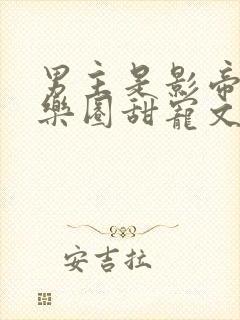 男主是影帝
樂園甜寵文
安吉拉